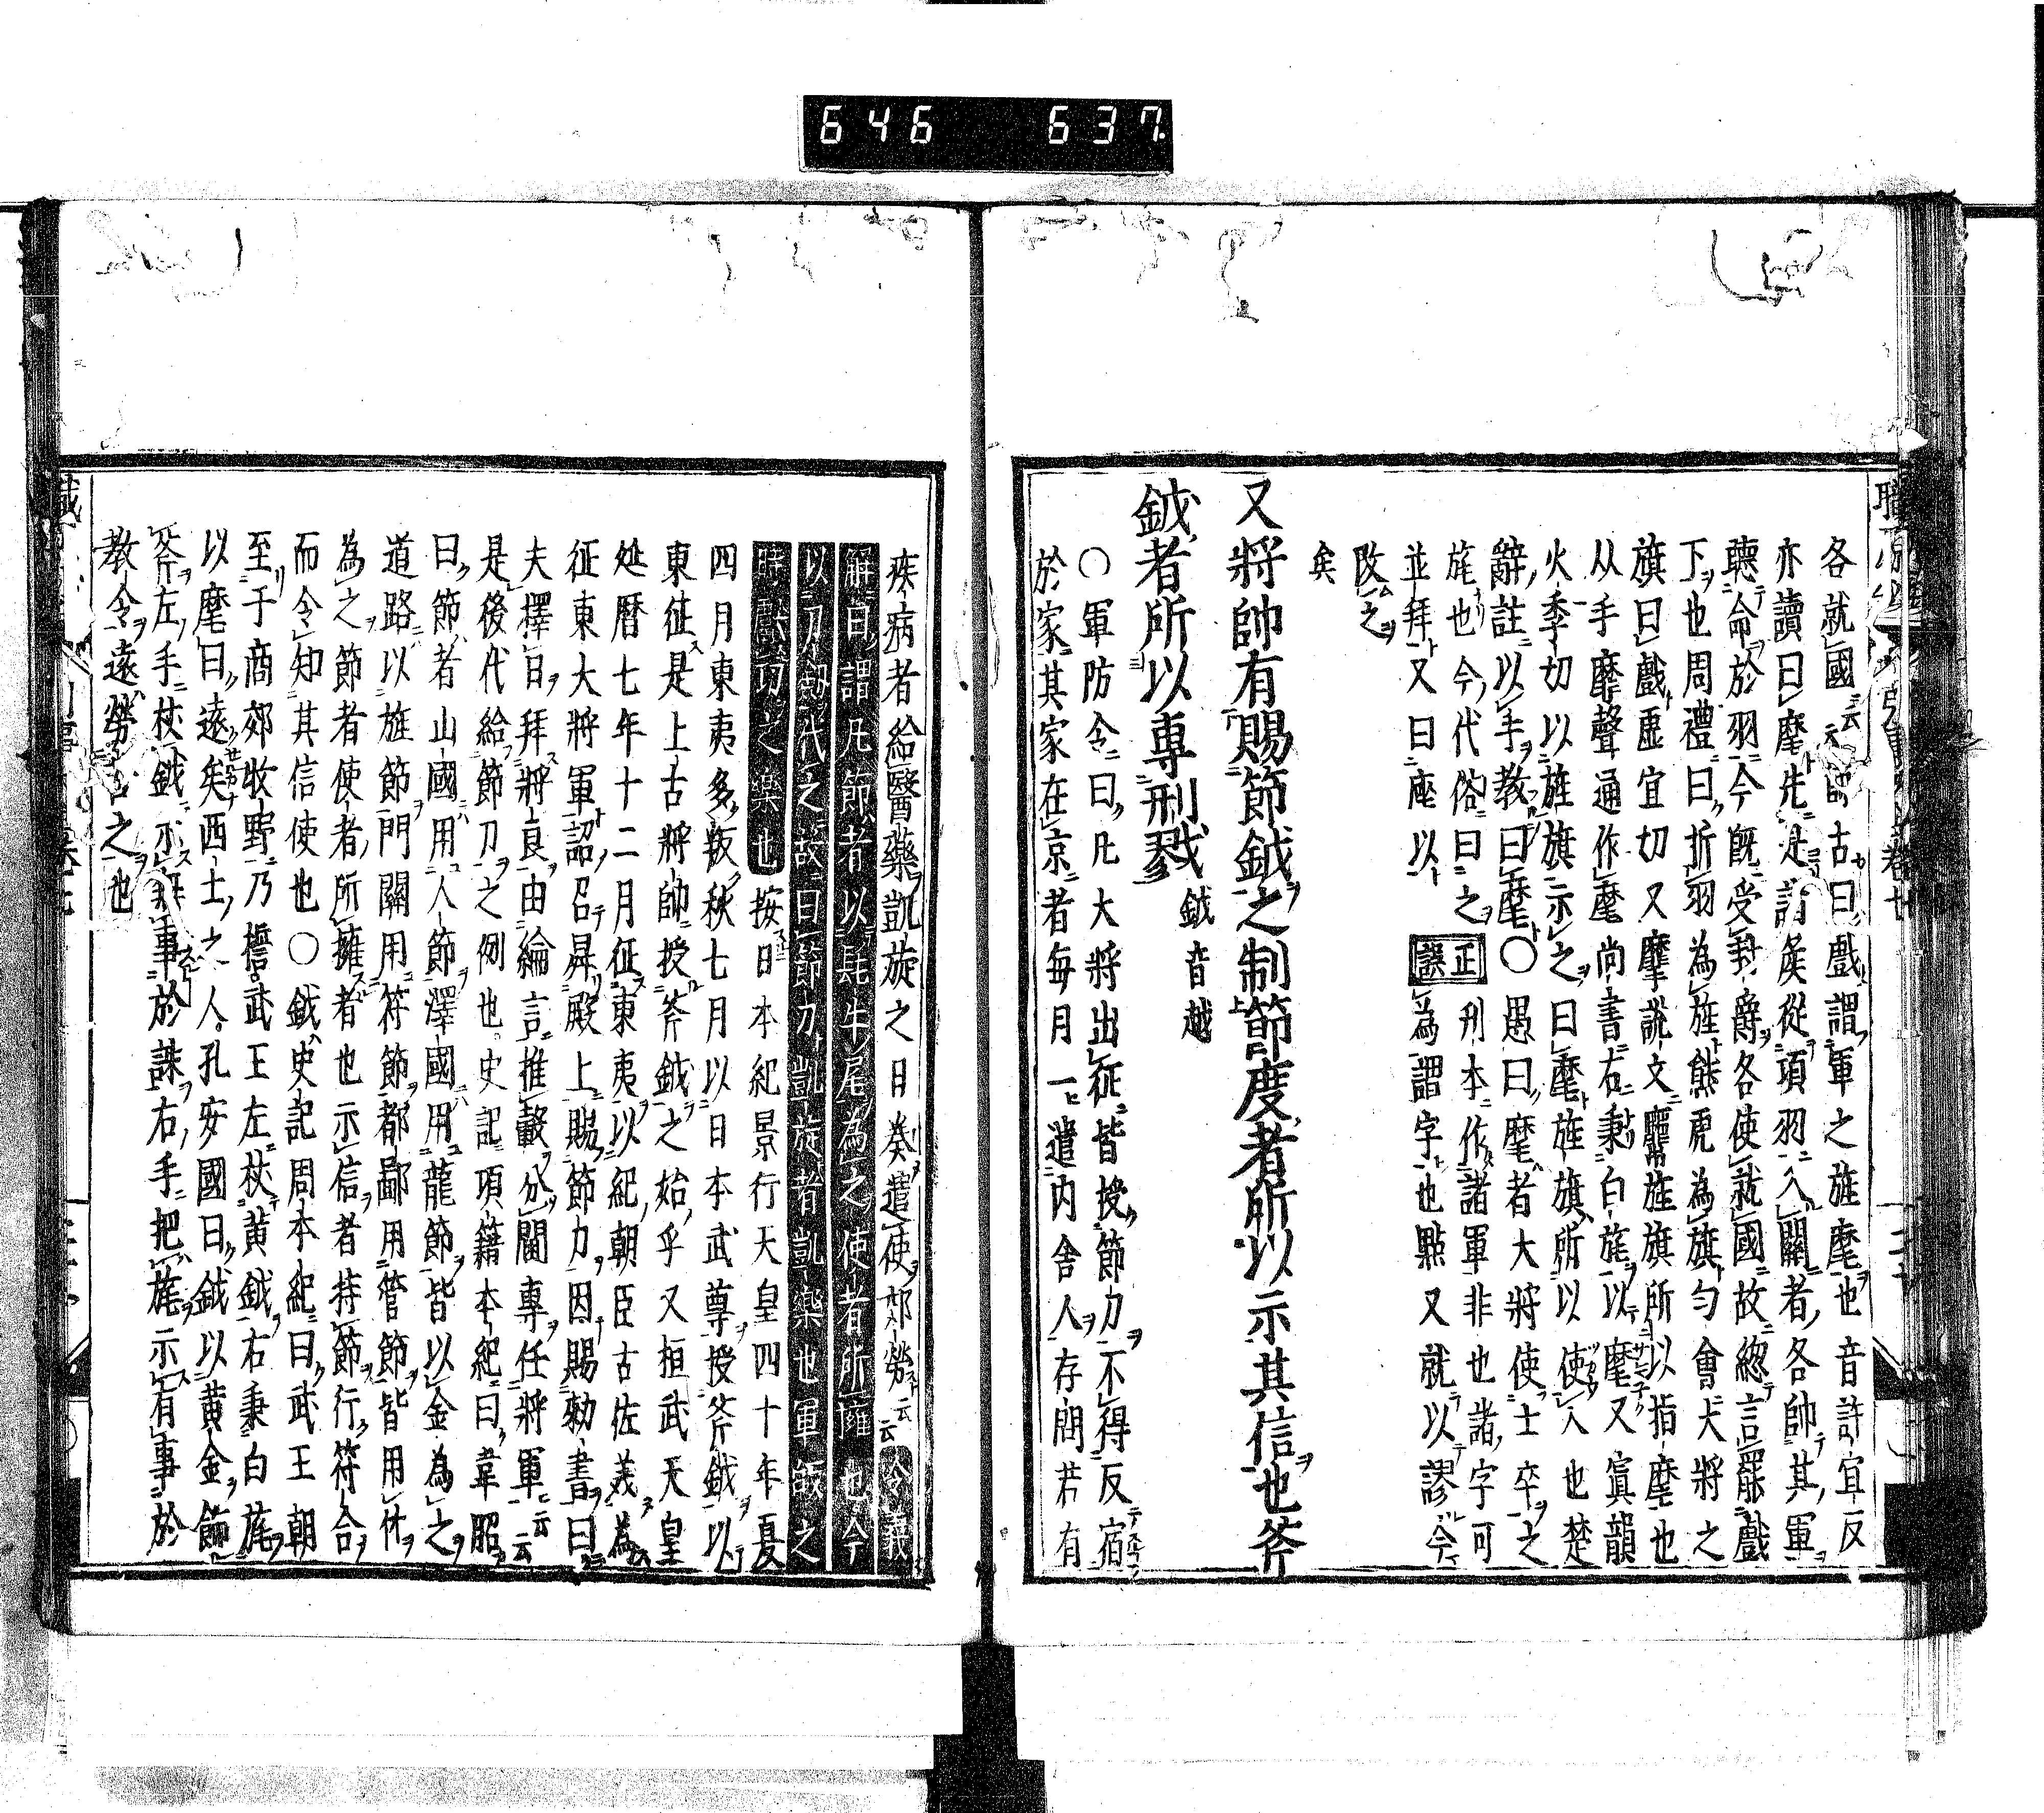 646 637.
各就國云云師古曰戲謂軍之旌麾也音許宜反
亦讀曰麾先是諸侯從項羽入關者各帥其軍
聽命於羽今既受封爵各使就國故總言罷戲
下也周禮曰折羽為旌熊虎為旗勻會大將之
旗曰戲虛宜切又摩說文麾旌旗所以指摩也
从手靡聲通作麾尚書右秉白旄以麾又寘韻
火季切以旌旗示之曰麾旌旗所以使人也楚
辭註以手教曰麾○愚曰麾者大將使士卒之
旄也今代俗曰之正誤刋本作諸軍非也諸字可
並拜又曰座以為謂字也點又就以謬今
改之
矣
又將帥有賜節鉞之制節度者所以示其信也斧
鉞者所以専刑戮鉞音越
○軍防令曰凡大將出征皆授節刀不得反宿
於家其家在京者每月一遣內舍人存問若有
疾病者給醫藥凱旋之日奏遣使郊勞云云令義
解曰謂凡節者以旄牛尾為之使者所擁也今
以刀劔代之故曰節刀凱旋者凱樂也軍敗之
時獻功之樂也按日本紀景行天皇四十年夏
四月東夷多叛秋七月以日本武尊授斧鉞以
東征是上古將帥授斧鉞之始乎又桓武天皇
延曆七年十二月征東夷以紀朝臣古佐美為
征東大將軍詔召昇殿上賜節刀因賜勑書曰
夫擇日拜將良由綸言推轂分閫專任將軍云云
是後代給節刀之例也史記項籍本紀曰韋昭
曰節者山國用人節澤國用龍節皆以金為之
道路以旌節門關用符節都鄙用管節皆用竹
為之使節者使者所擁者也示信者持節行符合
而令知其信使也○鉞史記周本紀曰武王朝
至于商郊牧野乃誓武王左杖黃鉞右秉白旄
以麾曰遠矣西土之人孔安國曰鉞以黃金飾
斧左手杖鉞示無事於誅右手把旄示有事於
教令遠勞之也